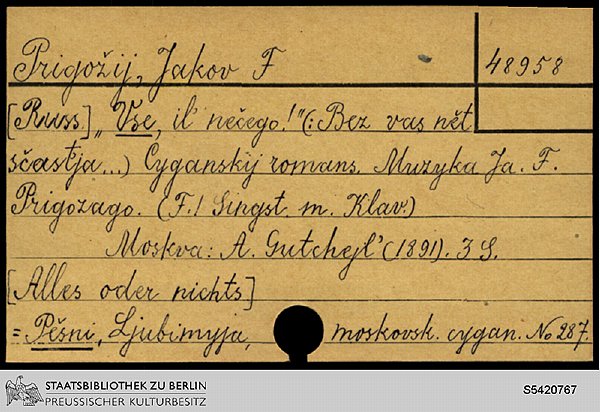 Prigožij, Jakov F
48958
[Russ.] „Vse, il' nečego!" (: Bez vas nět
sčastja...) Cyganskij romans. Muzyka Ja. F.
Prigožago. (F. 1 Singst. m. Klav.)
Moskva: A. Gutchejl' (1891). 3 S.
[Alles oder nichts]
= Pěsni, Ljubimyja, moskovsk. cygan. No 287.
STAATSBIBLIOTHEK ZU BERLIN
PREUSSISCHER KULTURBESITZ
S5420767